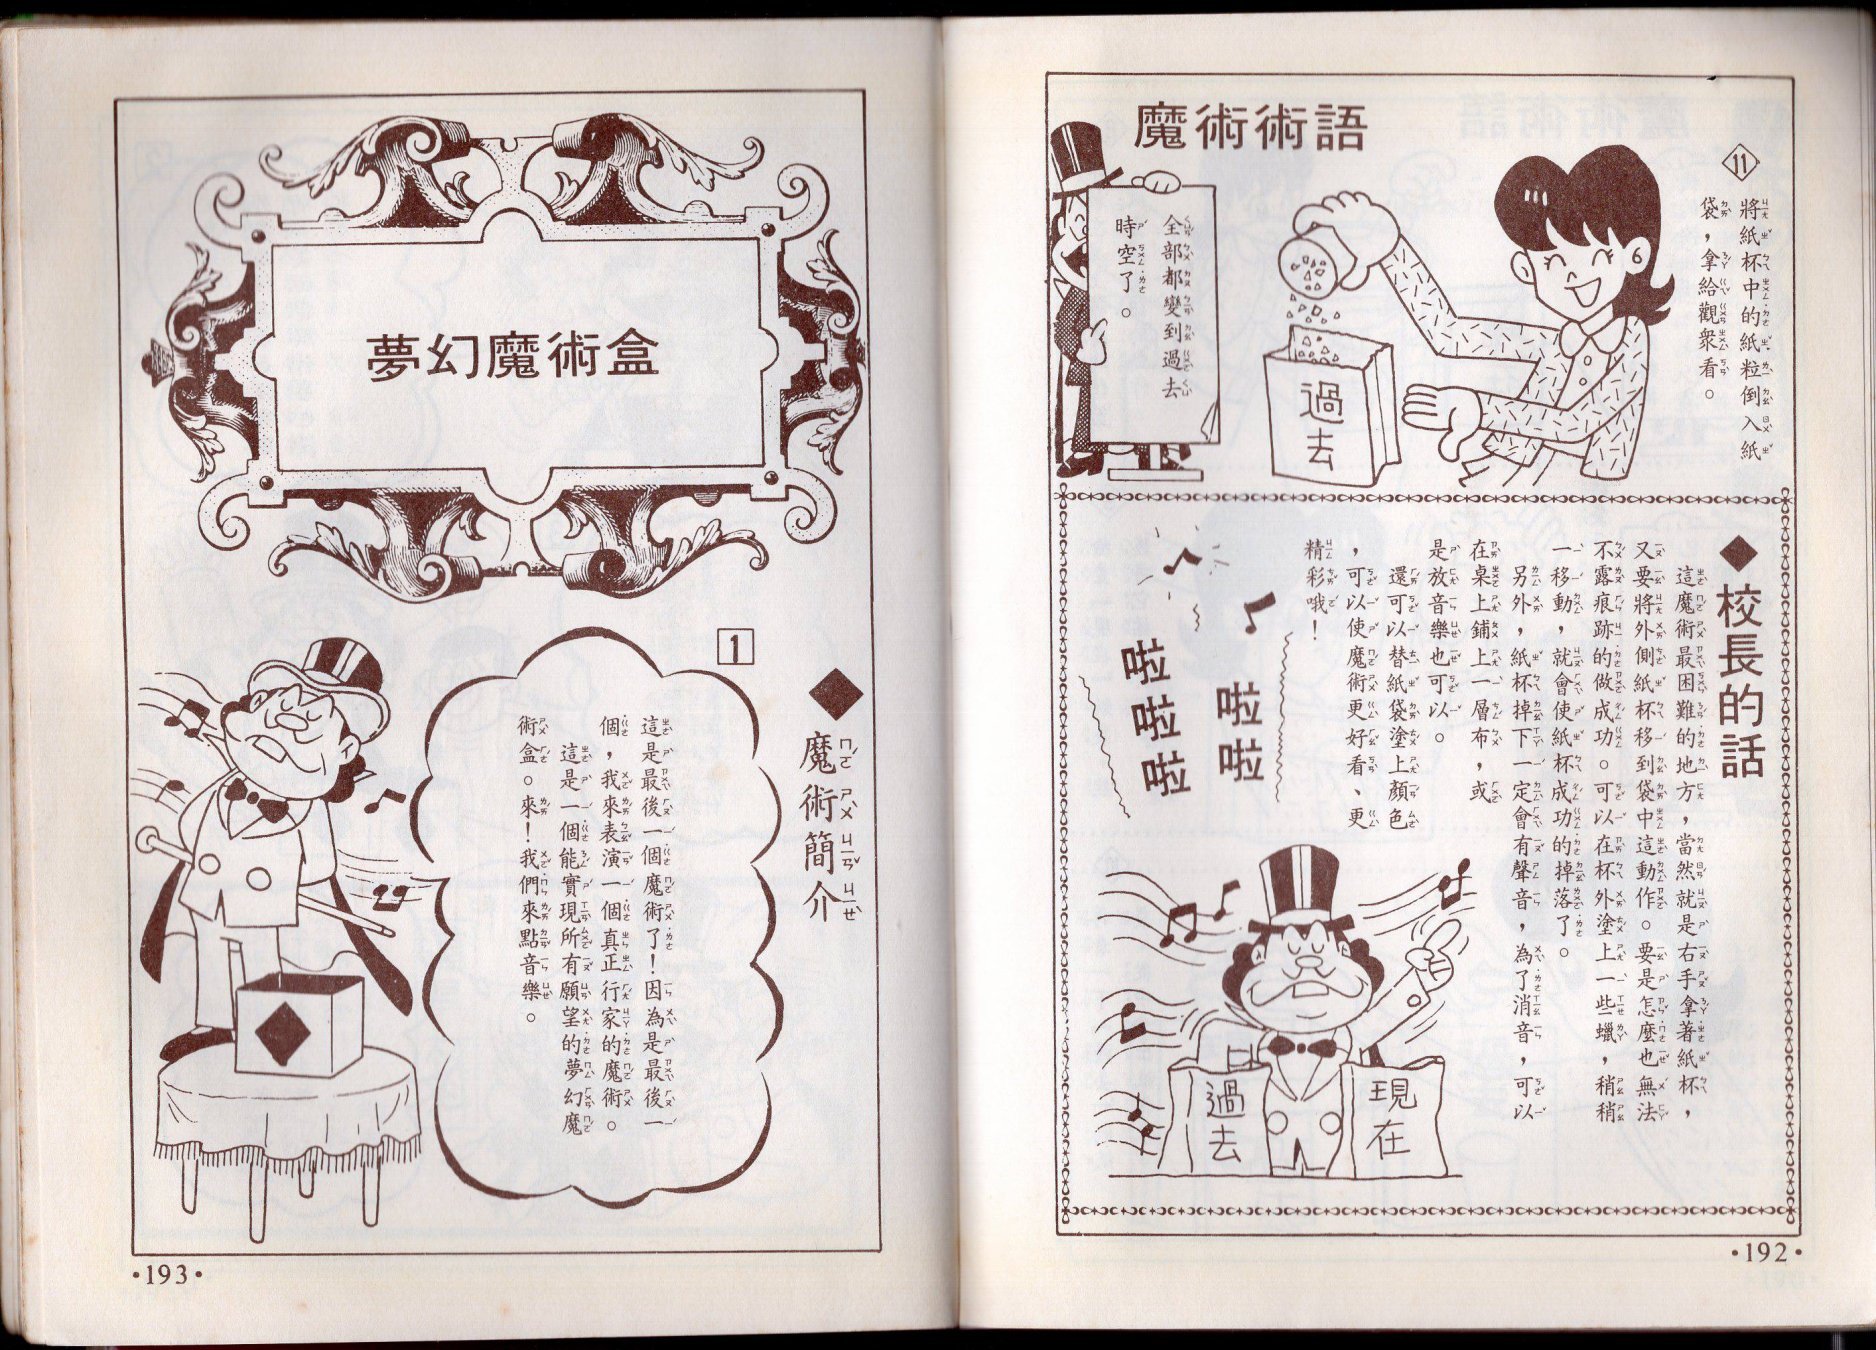 魔術術語
⑪
將紙杯中的紙粒倒入紙
袋，拿給觀衆看。
過去
全部都變到過去
時空了。
◆校長的話
這魔術最困難的地方，當然就是右手拿著紙杯，
又要將外側紙杯移到袋中這動作。要是怎麼也無法
不露痕跡的做成功。可以在杯外塗上一些蠟，稍稍
一移動，就會使紙杯成功的掉落了。
另外，紙杯掉下一定會有聲音，為了消音，可以
在桌上鋪上一層布，或
是放音樂也可以。
還可以替紙袋塗上顏色
，可以使魔術更好看、更
精彩哦！
啦啦
啦啦啦
現在
過去
•192•
夢幻魔術盒
◆魔術簡介
1
這是最後一個魔術了！因為是最後一
個，我來表演一個真正行家的魔術。
這是一個能實現所有願望的夢幻魔
術盒。來！我們來點音樂。
•193•